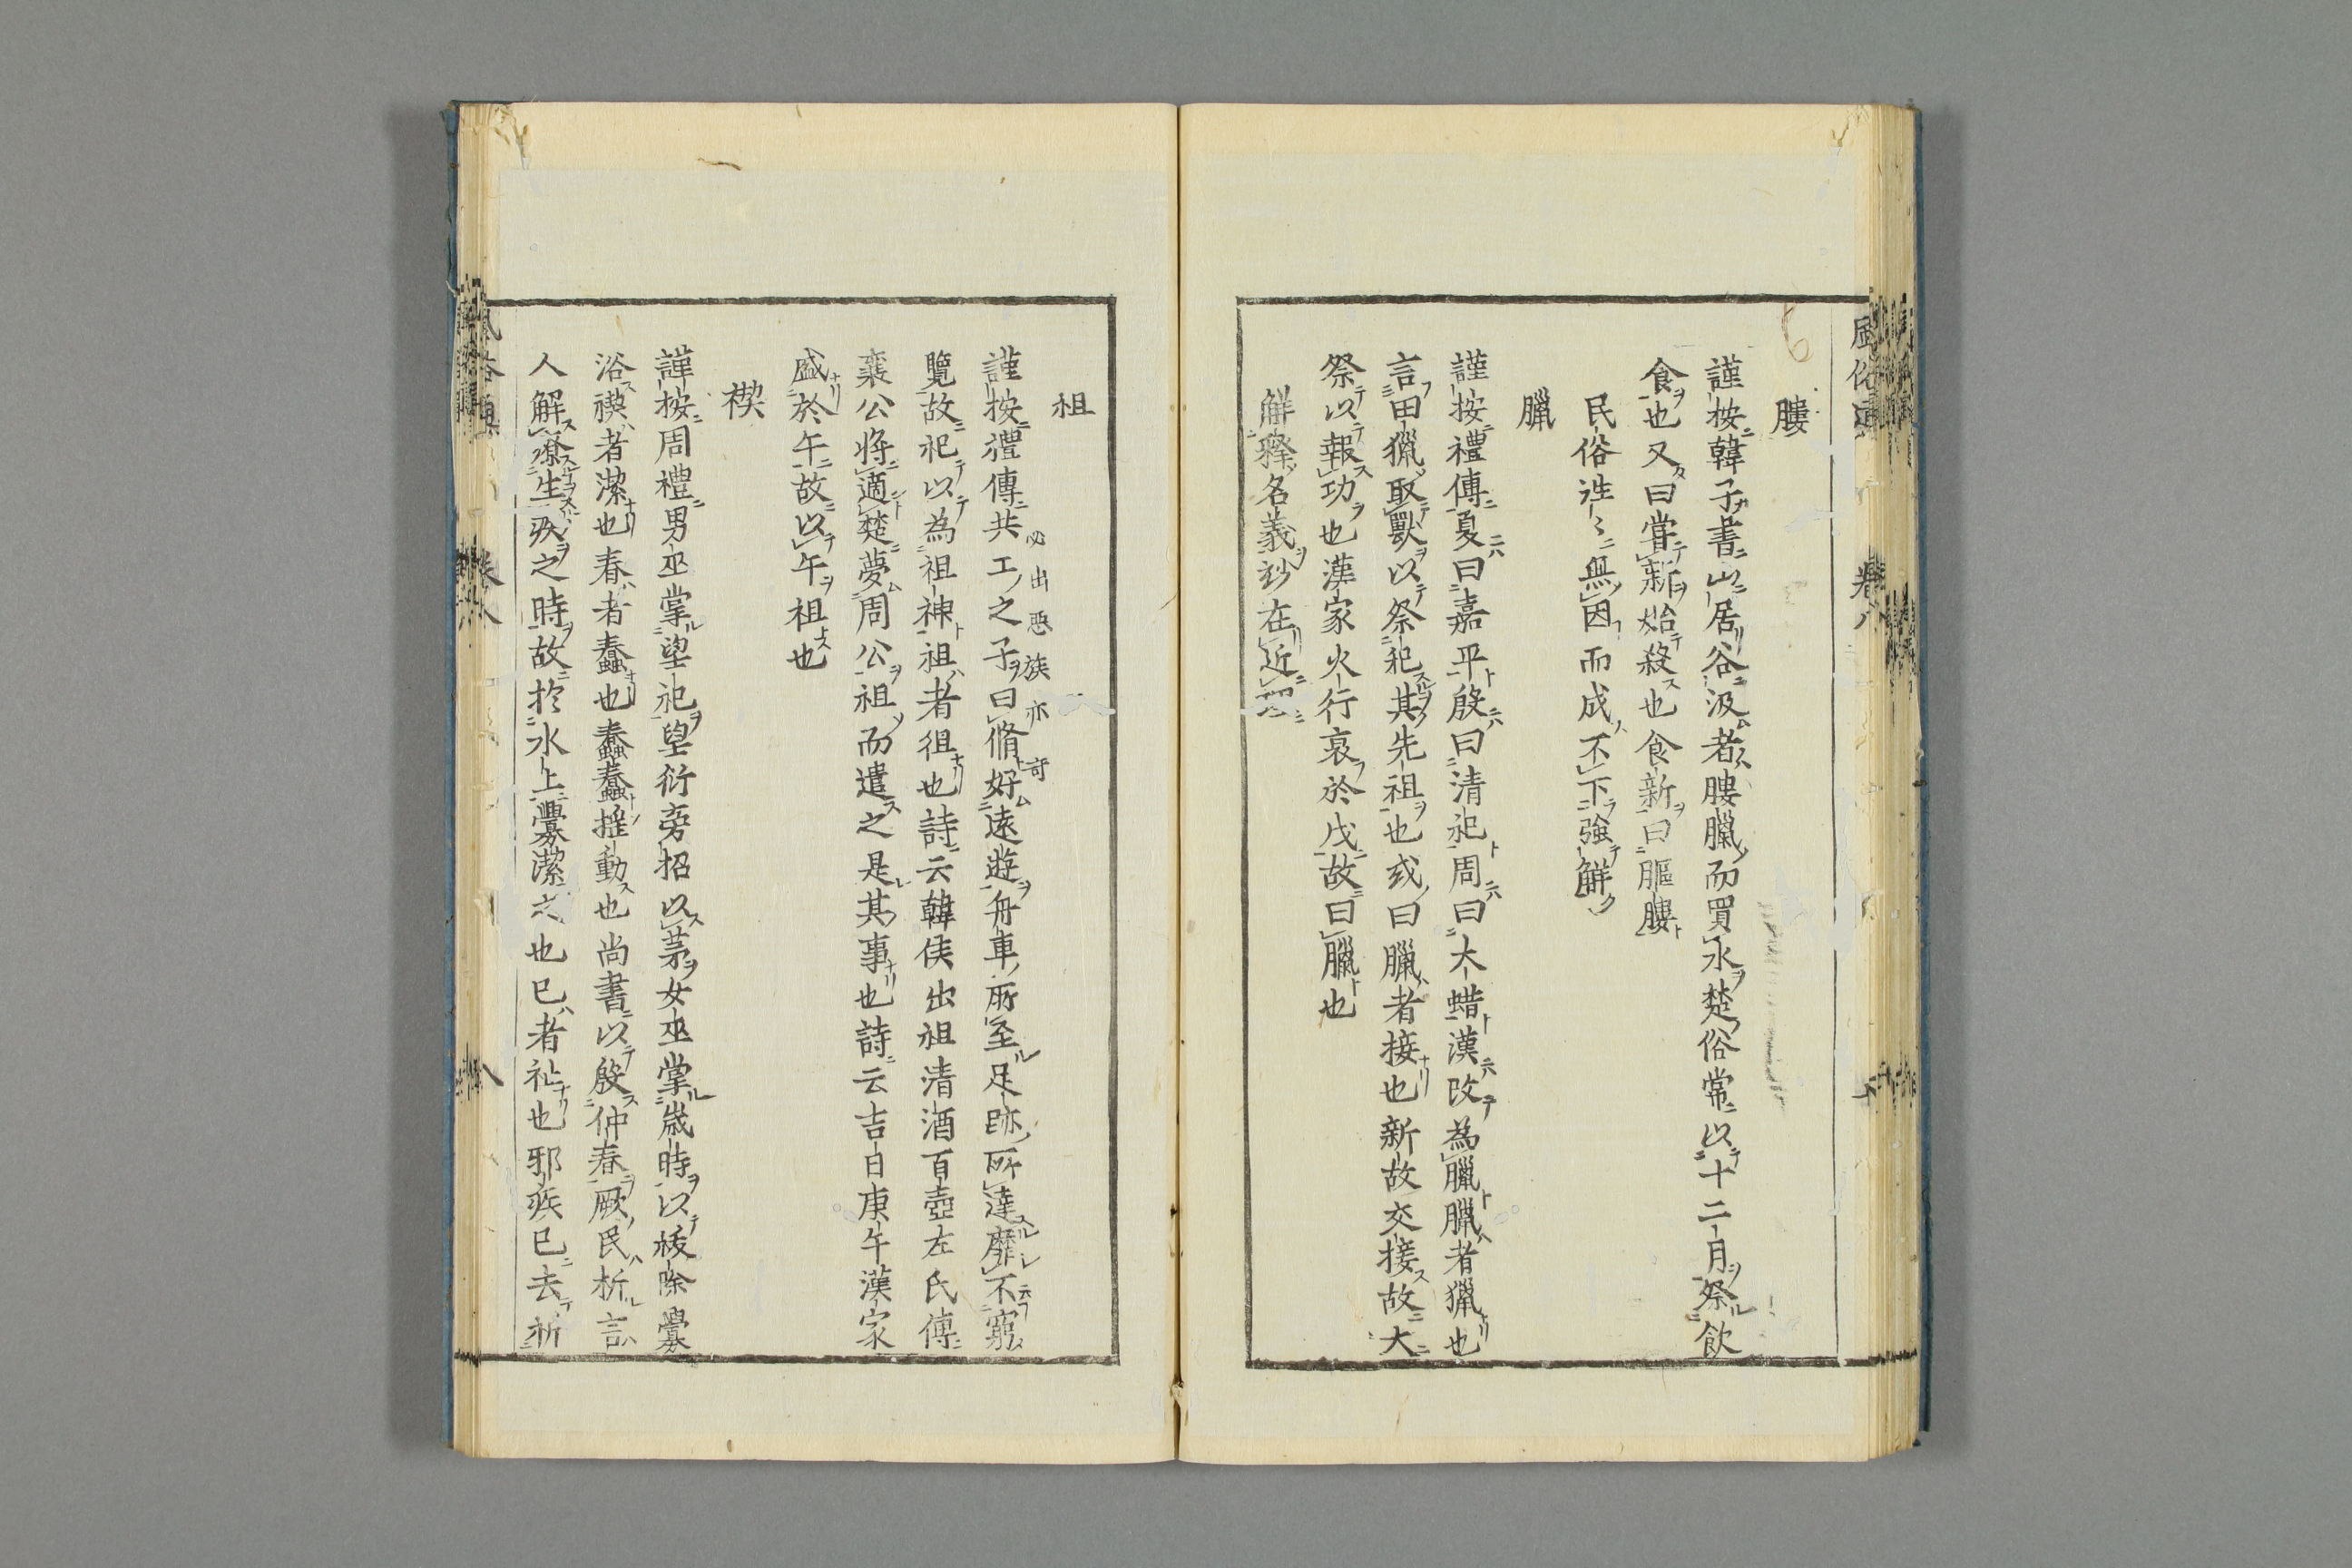 膢
謹按韓子書山居谷汲者膢臘而買水楚俗常以十二月祭飲
食也又曰嘗新始殺也食新曰䝙膢
民俗往〻無因而成不下強解
臘
謹按禮傳夏曰嘉平殷曰清祀周曰大蜡漢改為臘臘者獵也
言田獵取獸以祭祀其先祖也或曰臘者接也新故交接故大
祭以報功也漢家火行衰於戌故曰臘也
觧釋名義玅在近理
祖
謹按禮傳共工之子曰脩好遠遊舟車所至足跡所達靡不窮
必出惡族亦奇
覽故祀以為祖神祖者徂也詩云韓侯出祖清酒百壺左氏傳
襄公將適楚夢周公祖而遣之是其事也詩云吉日庚午漢家
盛於午故以午祖也
禊
謹按周禮男巫掌望祀望衍旁招以茅女巫掌歲時以祓除釁
浴禊者潔也春者蠢也蠢蠢搖動也尚書以殷仲春厥民析言
人解療生疾之時故於水上釁潔之也巳者祉也邪疾已去祈